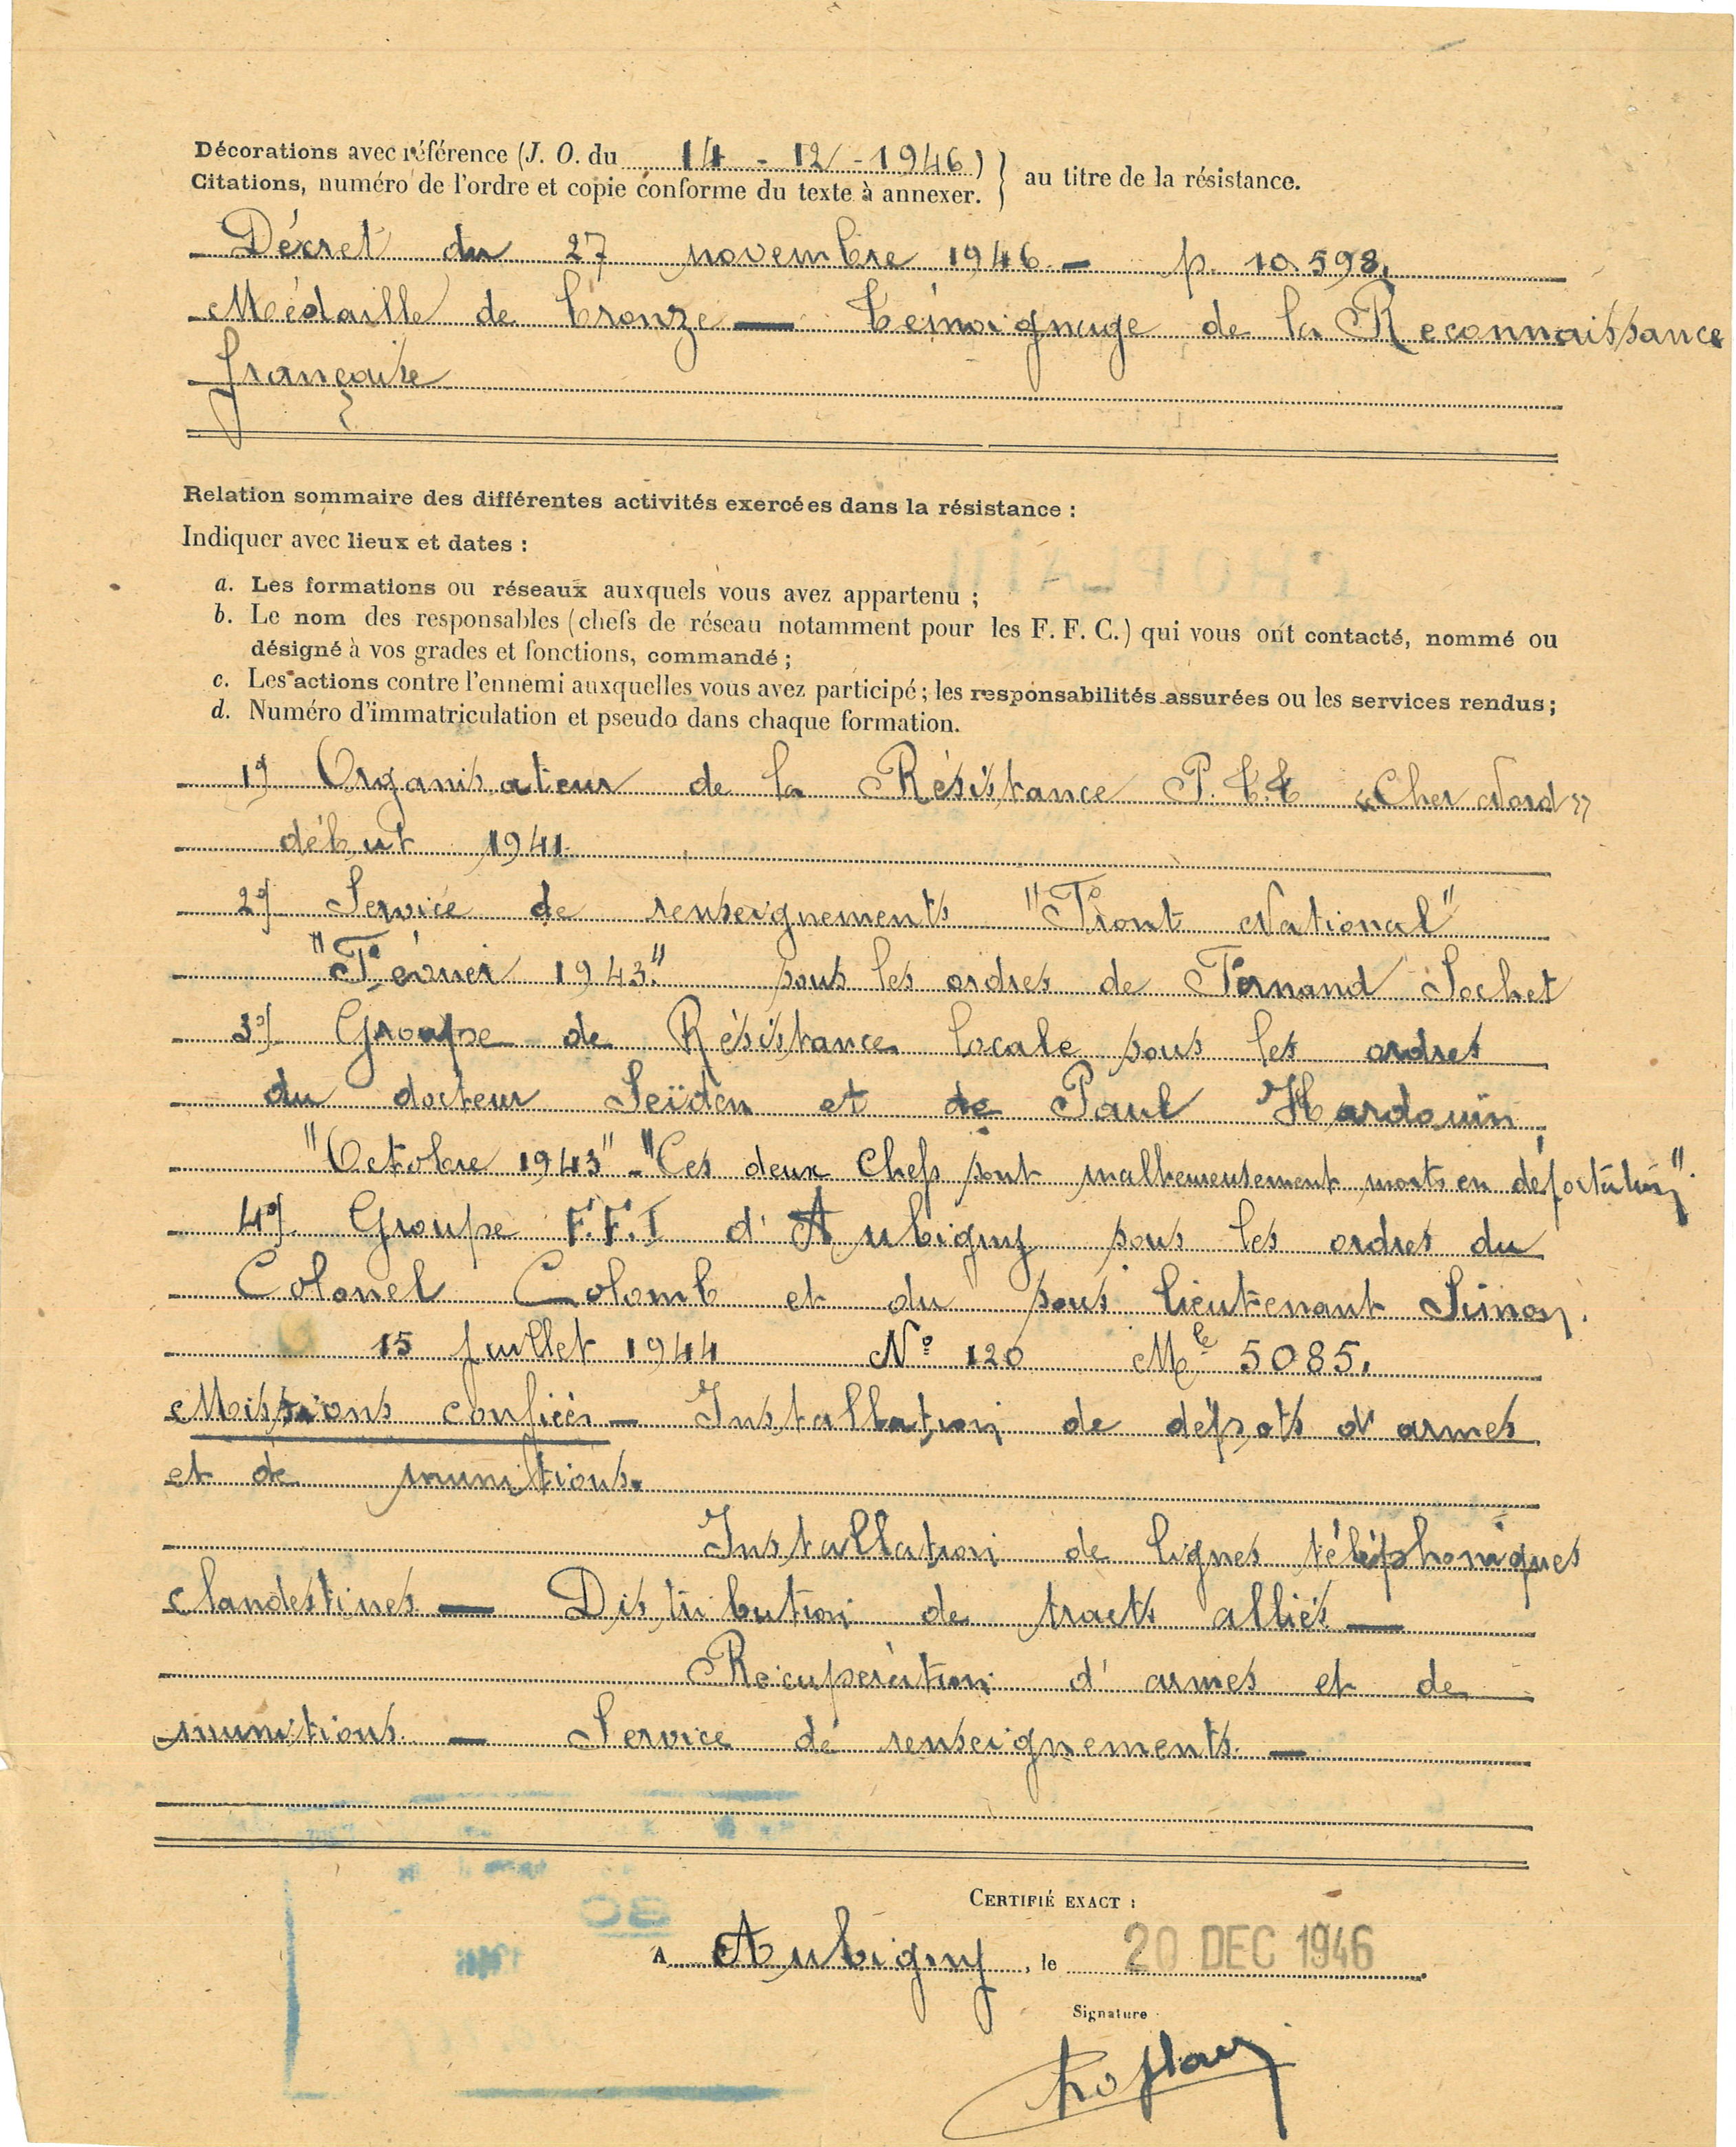 Décorations avec référence (J. O. du 14 - 12 - 1946)
Citations, numéro de l'ordre et copie conforme du texte à annexer. } au titre de la résistance.
Décret du 27 novembre 1946 - p. 10.598.
Médaille de bronze — témoignage de la Reconnaissance
française
Relation sommaire des différentes activités exercées dans la résistance :
Indiquer avec lieux et dates :
a. Les formations ou réseaux auxquels vous avez appartenu ;
b. Le nom des responsables (chefs de réseau notamment pour les F. F. C.) qui vous ont contacté, nommé ou
désigné à vos grades et fonctions, commandé ;
c. Les actions contre l'ennemi auxquelles vous avez participé ; les responsabilités assurées ou les services rendus ;
d. Numéro d'immatriculation et pseudo dans chaque formation.
1°/ Organisateur de la Résistance P.t.t «Cher Nord»
début 1941.
2°/ Service de renseignements "Front National"
"Février 1943." sous les ordres de Fernand Sochet
3°/ Groupe de Résistance locale sous les ordres
du docteur Seïden et de Paul Hardouin.
"Octobre 1943" - "Ces deux Chefs sont malheureusement morts en déportation".
4°/ Groupe F.F.I d'Aubigny sous les ordres du
Colonel Colomb et du sous lieutenant Simon.
15 Juillet 1944 N° 120 Mle 5085.
Missions confiées - Installation de dépots d'armes
et de munitions.
Installation de lignes téléphoniques
clandestines — Distribution de tracts alliés —
Récupération d'armes et de
munitions. — Service de renseignements. —
CERTIFIÉ EXACT :
A Aubigny, le 20 DEC 1946
Signature